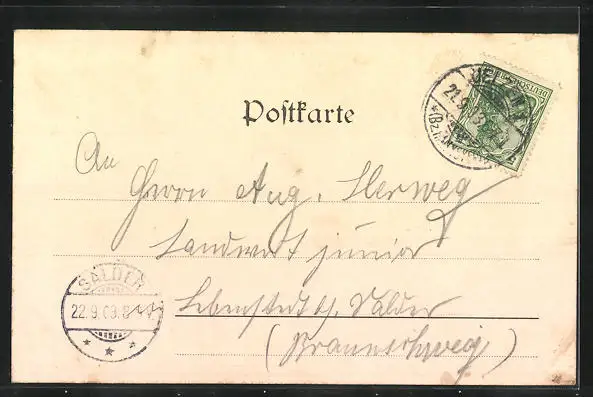 Postkarte
DEUTSCHES
21.9.03
An
Herrn Aug. Herweg
Landwirt junior
Lebenstedt b/ Salder
(Braunschweig)
SALDER
22.9.03.8